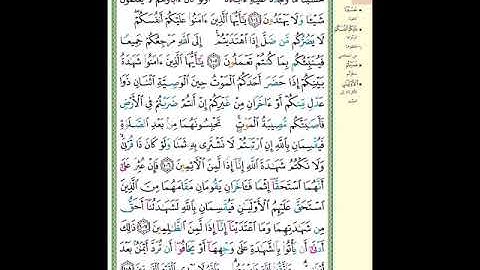 شَيْـًٔا وَلَا يَهْتَدُونَ ١٠٤ يَـٰٓأَيُّهَا ٱلَّذِينَ ءَامَنُوا۟ عَلَيْكُمْ أَنفُسَكُمْ
لَا يَضُرُّكُم مَّن ضَلَّ إِذَا ٱهْتَدَيْتُمْ ۚ إِلَى ٱللَّهِ مَرْجِعُكُمْ جَمِيعًا
فَيُنَبِّئُكُم بِمَا كُنتُمْ تَعْمَلُونَ ١٠٥ يَـٰٓأَيُّهَا ٱلَّذِينَ ءَامَنُوا۟ شَهَـٰدَةُ
بَيْنِكُمْ إِذَا حَضَرَ أَحَدَكُمُ ٱلْمَوْتُ حِينَ ٱلْوَصِيَّةِ ٱثْنَانِ ذَوَا
عَدْلٍ مِّنكُمْ أَوْ ءَاخَرَانِ مِنْ غَيْرِكُمْ إِنْ أَنتُمْ ضَرَبْتُمْ فِى ٱلْأَرْضِ
فَأَصَـٰبَتْكُم مُّصِيبَةُ ٱلْمَوْتِ ۚ تَحْبِسُونَهُمَا مِنۢ بَعْدِ ٱلصَّلَوٰةِ
فَيُقْسِمَانِ بِٱللَّهِ إِنِ ٱرْتَبْتُمْ لَا نَشْتَرِى بِهِۦ ثَمَنًا وَلَوْ كَانَ ذَا قُرْبَىٰ ۙ
وَلَا نَكْتُمُ شَهَـٰدَةَ ٱللَّهِ إِنَّآ إِذًا لَّمِنَ ٱلْـَٔاثِمِينَ ١٠٦ فَإِنْ عُثِرَ عَلَىٰٓ
أَنَّهُمَا ٱسْتَحَقَّآ إِثْمًا فَـَٔاخَرَانِ يَقُومَانِ مَقَامَهُمَا مِنَ ٱلَّذِينَ
ٱسْتَحَقَّ عَلَيْهِمُ ٱلْأَوْلَيَـٰنِ فَيُقْسِمَانِ بِٱللَّهِ لَشَهَـٰدَتُنَآ أَحَقُّ
مِن شَهَـٰدَتِهِمَا وَمَا ٱعْتَدَيْنَآ إِنَّآ إِذًا لَّمِنَ ٱلظَّـٰلِمِينَ ١٠٧ ذَٰلِكَ
أَدْنَىٰٓ أَن يَأْتُوا۟ بِٱلشَّهَـٰدَةِ عَلَىٰ وَجْهِهَآ أَوْ يَخَافُوٓا۟ أَن تُرَدَّ أَيْمَـٰنٌۢ بَعْدَ